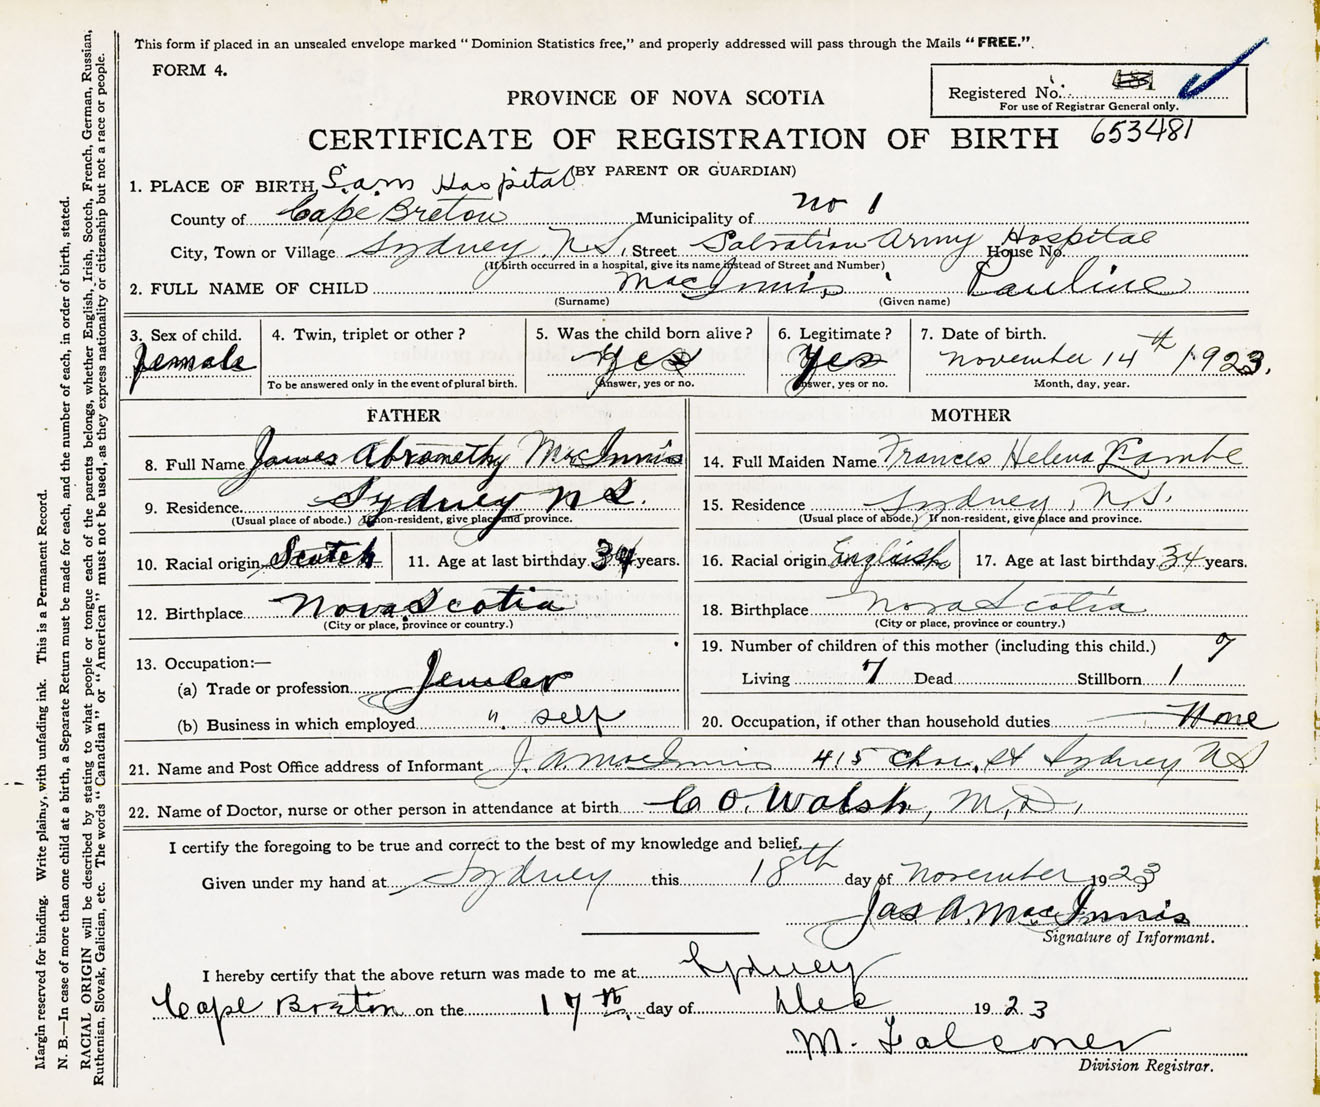 This form if placed in an unsealed envelope marked "Dominion Statistics free," and properly addressed will pass through the Mails "FREE."
FORM 4.
Registered No.
For use of Registrar General only.
PROVINCE OF NOVA SCOTIA
CERTIFICATE OF REGISTRATION OF BIRTH 653481
(BY PARENT OR GUARDIAN)
1. PLACE OF BIRTH, Hospital
County of Cape Breton Municipality of No 1
City, Town or Village Sydney, N.S. Street Salvation Army Hospital House No.
(If birth occurred in a hospital, give its name instead of Street and Number)
2. FULL NAME OF CHILD MacInnis, Pauline
(Surname) (Given name)
3. Sex of child. 4. Twin, triplet or other? 5. Was the child born alive? 6. Legitimate? 7. Date of birth.
Female Yes Yes November 14th 1923.
To be answered only in the event of plural birth. Answer, yes or no. Answer, yes or no. Month, day, year.
FATHER MOTHER
8. Full Name James MacInnis 14. Full Maiden Name Frances Helena Lambe
9. Residence Sydney N S. 15. Residence Sydney, N.S.
(Usual place of abode.) If non-resident, give place and province. (Usual place of abode.) If non-resident, give place and province.
10. Racial origin Scotch 11. Age at last birthday 34 years. 16. Racial origin English 17. Age at last birthday 34 years.
12. Birthplace Nova Scotia 18. Birthplace Nova Scotia
(City or place, province or country.) (City or place, province or country.)
13. Occupation:— 19. Number of children of this mother (including this child.) 7
(a) Trade or profession Jeweler Living 7 Dead Stillborn 1
(b) Business in which employed " self 20. Occupation, if other than household duties None
21. Name and Post Office address of Informant J. A. MacInnis 415 St Sydney NS
22. Name of Doctor, nurse or other person in attendance at birth C O. Walsh, M.D.
I certify the foregoing to be true and correct to the best of my knowledge and belief.
Given under my hand at Sydney this 18th day of November 1923
Jas A. MacInnis
Signature of Informant.
I hereby certify that the above return was made to me at Sydney
Cape Breton on the 17th day of Dec 1923
M. Falconer
Division Registrar.
Margin reserved for binding. Write plainly, with unfading ink. This is a Permanent Record.
N. B.—In case of more than one child at birth, a Separate Return must be made for each, and the number of each, in order of birth, stated.
RACIAL ORIGIN will be described by stating to what people or tongue each of the parents belongs, whether English, Irish, Scotch, French, German, Russian,
Ruthenian, Slovak, Galician, etc. The words "Canadian" or "American" must not be used, as they express nationality or citizenship but not a race or people.